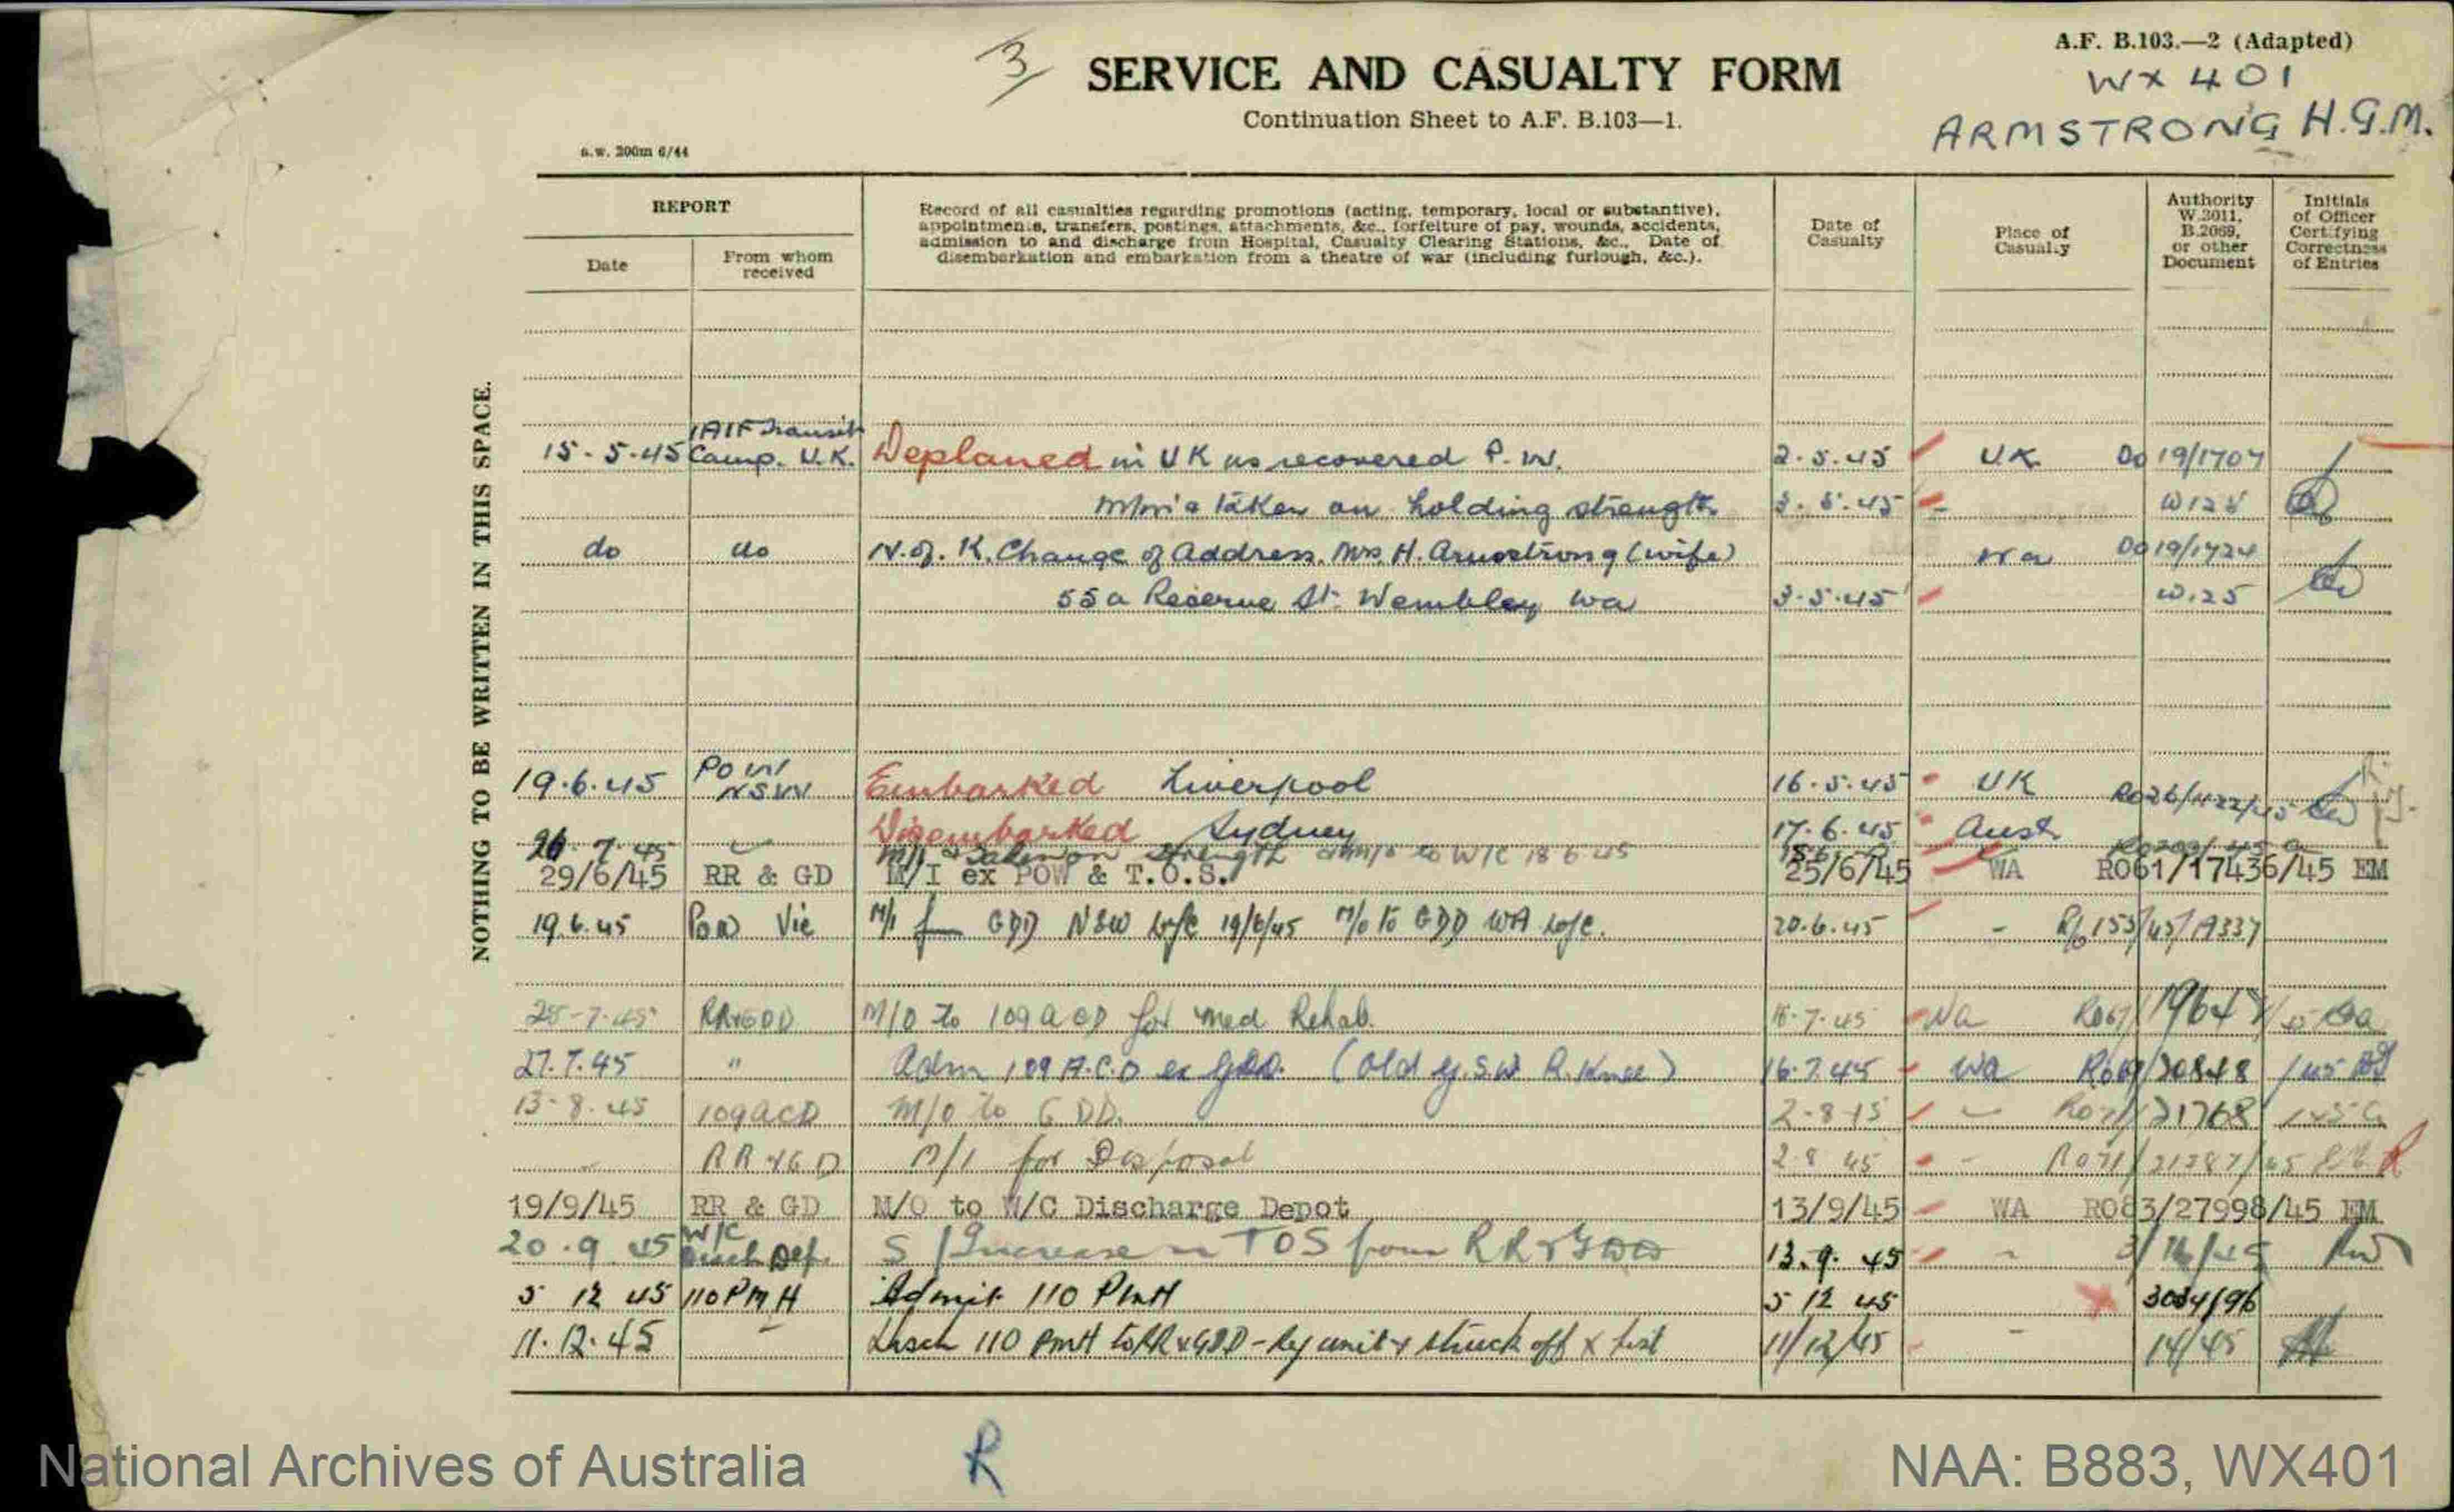 3
SERVICE AND CASUALTY FORM
Continuation Sheet to A.F. B.103—1.
A.F. B.103.—2 (Adapted)
WX 401
ARMSTRONG H.G.M.
s.w. 200m 6/44
NOTHING TO BE WRITTEN IN THIS SPACE.
REPORT
Date
From whom received
Record of all casualties regarding promotions (acting, temporary, local or substantive),
appointments, transfers, postings, attachments, &c., forfeiture of pay, wounds, accidents,
admission to and discharge from Hospital, Casualty Clearing Stations, &c., Date of
disembarkation and embarkation from a theatre of war (including furlough, &c.).
Date of Casualty
Place of Casualty
Authority W.3011, B.2069, or other Document
Initials of Officer Certifying Correctness of Entries
AIF Transit
15-5-45 Camp. U.K. Deplaned in UK as recovered P.W. 2.5.45 U.K. 19/1707
taken on holding strength 3.5.45
do do N.of.K. Change of Address. Mrs. H. Armstrong (wife) Wa 19/1724
55a Reserve St. Wembley Wa 3.5.45 W.25
19.6.45 POW NSW Embarked Liverpool 16.5.45 UK
Disembarked Sydney 17.6.45 Aust
7.45 M/I & Taken on strength to W/C 18 6 45
29/6/45 RR & GD M/I ex POW & T.O.S. 25/6/45 WA RO61/17436/45 EM
19.6.45 POW Vic M/I GDD NSW L of C 19/6/45 M/O to GDD WA L of C. 20.6.45 - 153/45/A337
25-7-45 RR&GDD M/O to 109 ACD for Med Rehab. 7.45 Wa
27.7.45 " Adm 109 A.C.D ex GDD. (Old G.S.W. R. Knee) 16.7.45 Wa /20848/45
13-8-45 109ACD M/O to GDD. 2-8-45 21768
RR & GD M/I for Disposal 2 8 45
19/9/45 RR & GD M/O to W/C Discharge Depot 13/9/45 WA RO83/27998/45 EM
20.9.45 W/C Disch Dep. S/Increase TOS from RR & GDD 13.9.45
5 12 45 110 PMH Admit 110 PMH 5 12 45
11.12.45 Disch 110 PMH to RR & GDD - unit & struck off X list 11/12/45 - 14/45
R
National Archives of Australia
NAA: B883, WX401